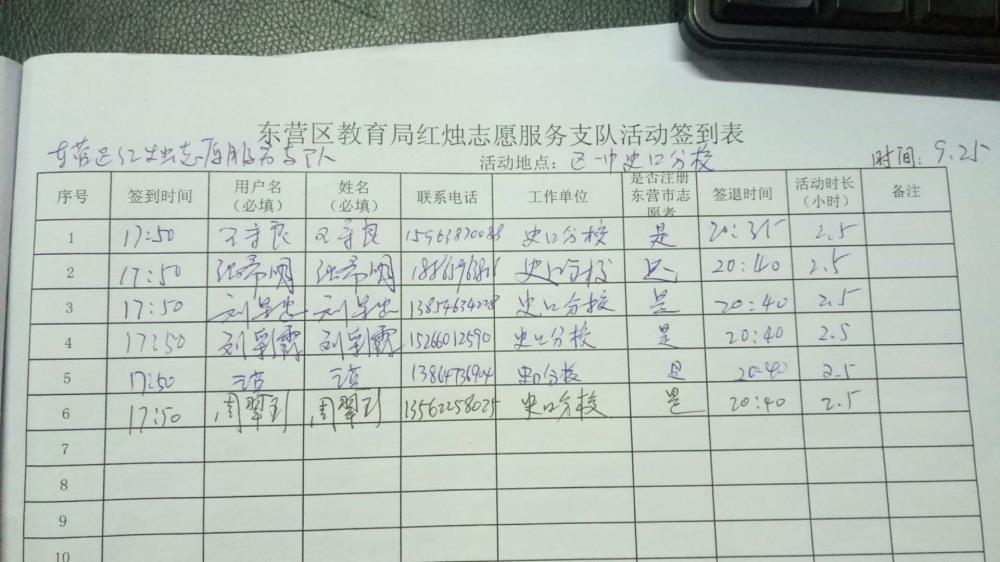 东营区教育局红烛志愿服务支队活动签到表
东营区红烛志愿服务支队 活动地点：区一中史口分校 时间：9.25
序号 签到时间 用户名（必填） 姓名（必填） 联系电话 工作单位 是否注册东营市志愿者 签退时间 活动时长（小时） 备注
1 17:50 王守良 王守良 史口分校 是 20:35 2.5
2 17:50 张希明 张希明 史口分校 是 20:40 2.5
3 17:50 13854634228 史口分校 是 20:40 2.5
4 17:50 刘彩霞 刘彩霞 15266012590 史口分校 是 20:40 2.5
5 17:50 13864736904 史口分校 是 20:40 2.5
6 17:50 13562258025 史口分校 是 20:40 2.5
7
8
9
10